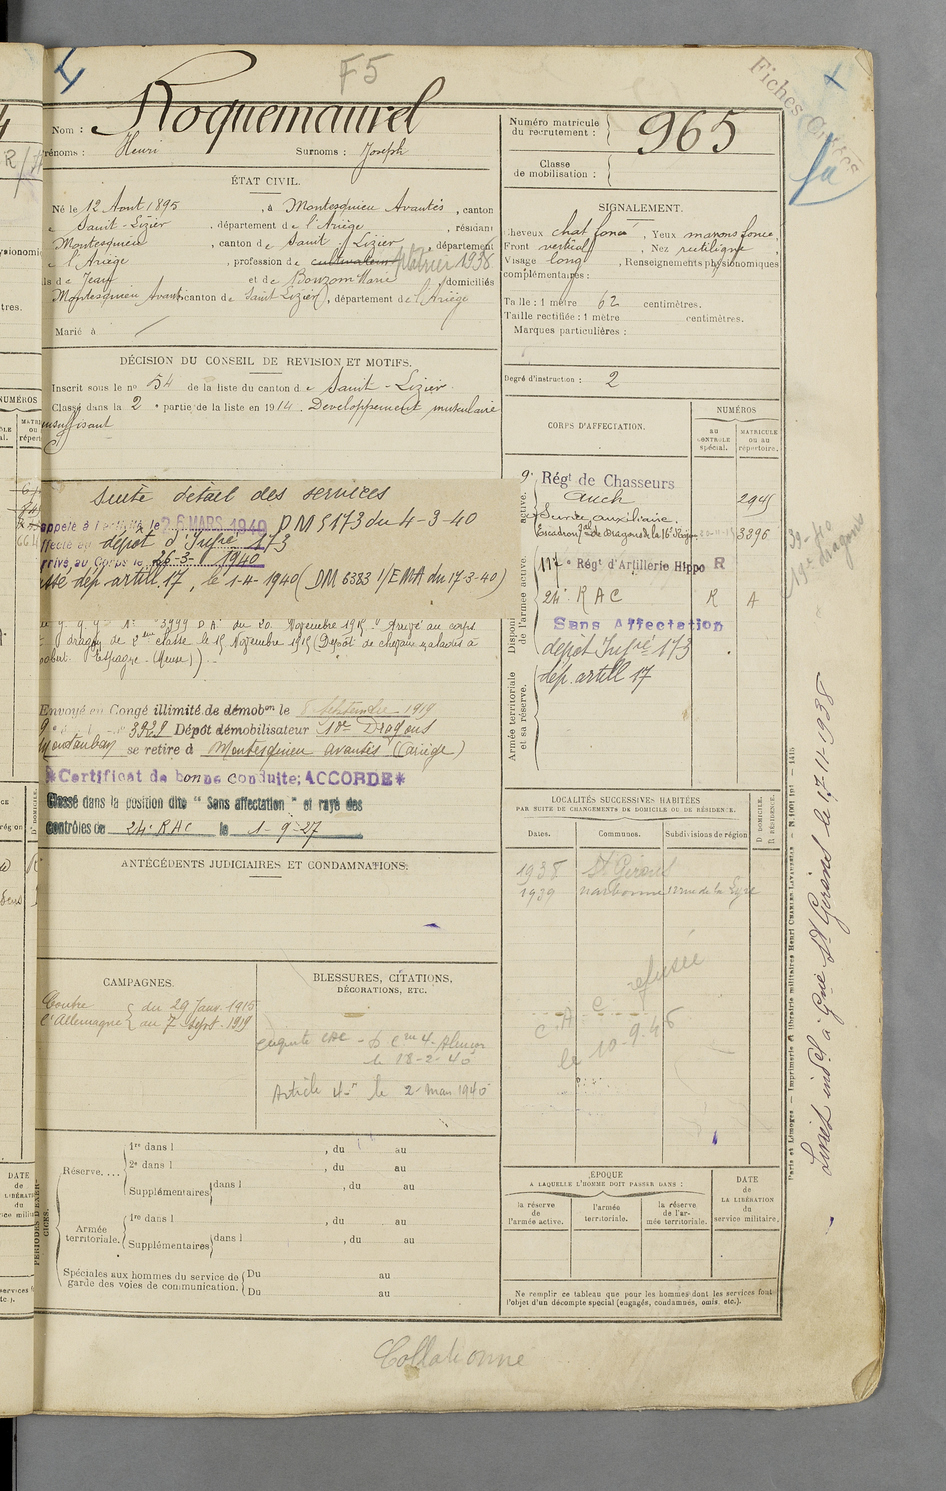 F5
Fiches
Nom : Roquemaurel
Prénoms : Henri Surnoms : Joseph
ÉTAT CIVIL.
Né le 12 Aout 1895, à Montesquieu Avantès, canton
de Saint-Lizier, département de l'Ariège, résidant
Montesquieu, canton de Saint Lizier, département
de l'Ariège, profession de cultivateur
fils de Jean et de Bouzom Marie domiciliés
Montesquieu Avantès canton de Saint Lizier, département de l'Ariège
Marié à
DÉCISION DU CONSEIL DE REVISION ET MOTIFS.
Inscrit sous le no 54 de la liste du canton de Saint-Lizier.
Classé dans la 2e partie de la liste en 1914. Developpement musculaire
insuffisant
Suite détail des services
appelé à l'activité le 26 MARS 1940 DM 5173 du 4-3-40
affecté au dépôt d'Infie 173
arrivé au Corps le 26-3-1940
passé dép. artill. 17, le 1-4-1940 (DM 6383 1/EMA du 17-3-40)
3999 D.A. du 20 Novembre 1915. Arrivé au corps
dragon de 2eme classe le 15 Novembre 1915 (Dépôt de chevaux malades à
(Meuse))
Envoyé en Congé illimité de démobon le 8 septembre 1919
9 3929 Dépôt démobilisateur 10e Dragons
Montauban se retire à Montesquieu avantès (Ariège)
*Certificat de bonne conduite; ACCORDE*
Classé dans la position dite "Sans affectation" et rayé des
contrôles du 24e RAC le 1-9-27
ANTÉCÉDENTS JUDICIAIRES ET CONDAMNATIONS:
CAMPAGNES.
Contre l'Allemagne { du 29 Janv. 1915
au 7 Sept. 1919
BLESSURES, CITATIONS,
DÉCORATIONS, ETC.
le 18-2-40
Article 4 le 2 mars 1940
PÉRIODES D'EXERCICES.
Réserve.... 1re dans l , du au
2e dans l , du au
Supplémentaires dans l , du au
Armée territoriale. 1re dans l , du au
Supplémentaires dans l , du au
Spéciales aux hommes du service de garde des voies de communication. Du au
Du au
Numéro matricule du recrutement : 965
Classe de mobilisation :
SIGNALEMENT.
Cheveux chat foncé, Yeux marons foncé,
Front vertical, Nez rectiligne
Visage long, Renseignements physionomiques
complémentaires :
Taille : 1 mètre 62 centimètres.
Taille rectifiée : 1 mètre centimètres.
Marques particulières :
Degré d'instruction : 2
CORPS D'AFFECTATION. NUMÉROS
au CONTRÔLE spécial. MATRICULE ou au répertoire.
9e Régt de Chasseurs
Auch 2945
Service auxiliaire.
Escadron de dragons de la 16e Region 3396
117e Régt d'Artillerie Hippo R
24e RAC R A
Sans Affectation
dépôt Infie 173
dép. artill 17
Armée territoriale et sa réserve.
LOCALITÉS SUCCESSIVES HABITÉES
PAR SUITE DE CHANGEMENTS DE DOMICILE OU DE RÉSIDENCE.
Dates. Communes. Subdivisions de région D. DOMICILE. R. RÉSIDENCE.
1938 St Girons
1939 narbonne 12 rue de la Lyre
C.A.C. refusée
le 10-9-46
ÉPOQUE
A LAQUELLE L'HOMME DOIT PASSER DANS :
la réserve de l'armée active. l'armée territoriale. la réserve de l'armée territoriale.
DATE de LA LIBÉRATION du service militaire.
Ne remplir ce tableau que pour les hommes dont les services font
l'objet d'un décompte spécial (engagés, condamnés, omis, etc.).
Paris et Limoges — Imprimerie & librairie militaires Henri CHARLES-LAVAUZELLE
Livret indel à Gnie St Girons le 17-11-1938
Collationné